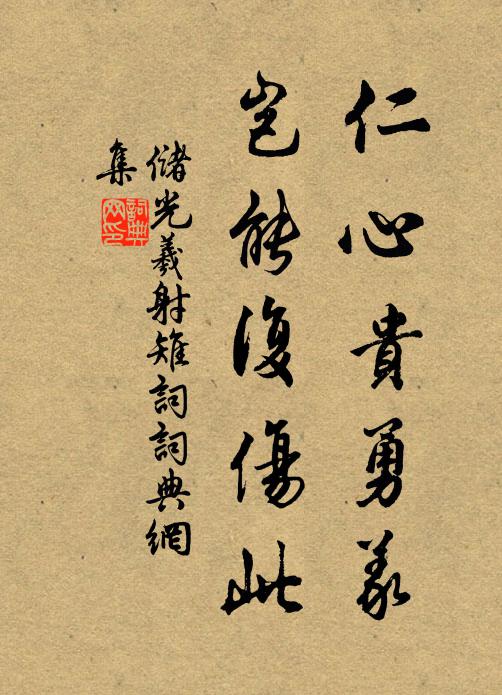 仁心貴勇義
豈能復傷此
儲光羲射雉詞詞典網
集
詞典
网印